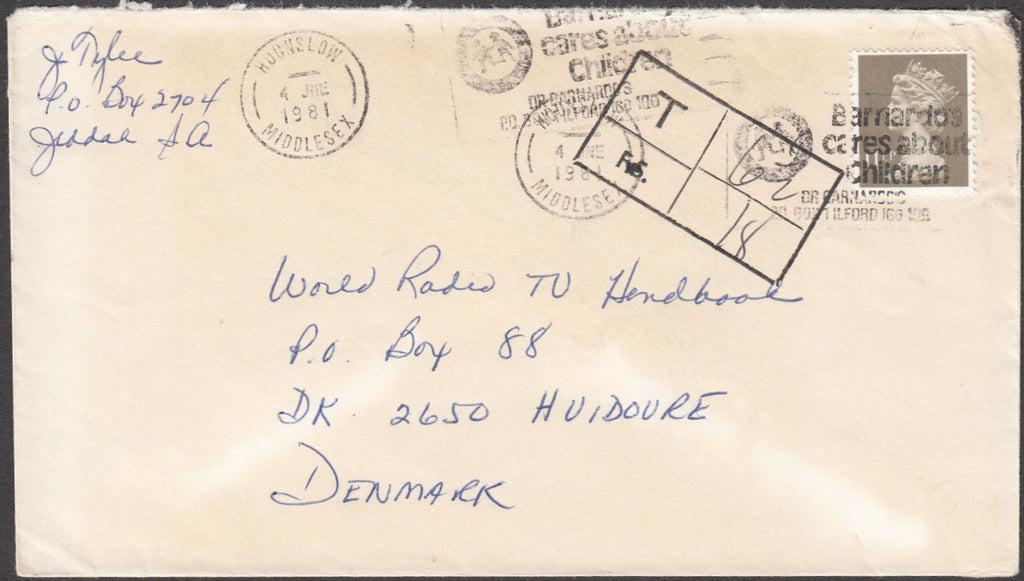 J. Tylee
P.O. Box 2704
Jeddah S A
HOUNSLOW
4 JNE
1981
MIDDLESEX
cares about
Children
DR BARNARDO'S
ILFORD IG6 1QG
HOUNSLOW
4 JNE
1981
MIDDLESEX
T
18
Barnardo's
cares about
Children
DR BARNARDO'S
ILFORD IG6 1QG
World Radio TV Handbook
P.O. Box 88
DK 2650 HUIDOURE
DENMARK